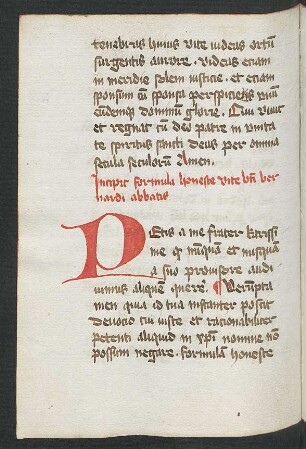 tenebras huius vite videas ortū
surgentis aurore . videas etiam
in meridie solem iusticie . et etiam
sponsum cū sponsa perspicies vnū
eundemqȝ dominum glorie . Qui viuit
et regnat cū deo patre in vnita
te spiritus sancti deus per omnia
secula seculorū Amen .
Incipit formula honeste vite bti ber
nardi abbatis
Petis a me frater karissi
me qȝ nūquam et nusquam
a suo prouisore audi
uimus aliquē querere ¶ Verumpta
men quia id tua instanter poscit
deuocio cui iuste et racionabiliter
petenti aliquid in xpi nomine nō
possum negare . formulam honeste